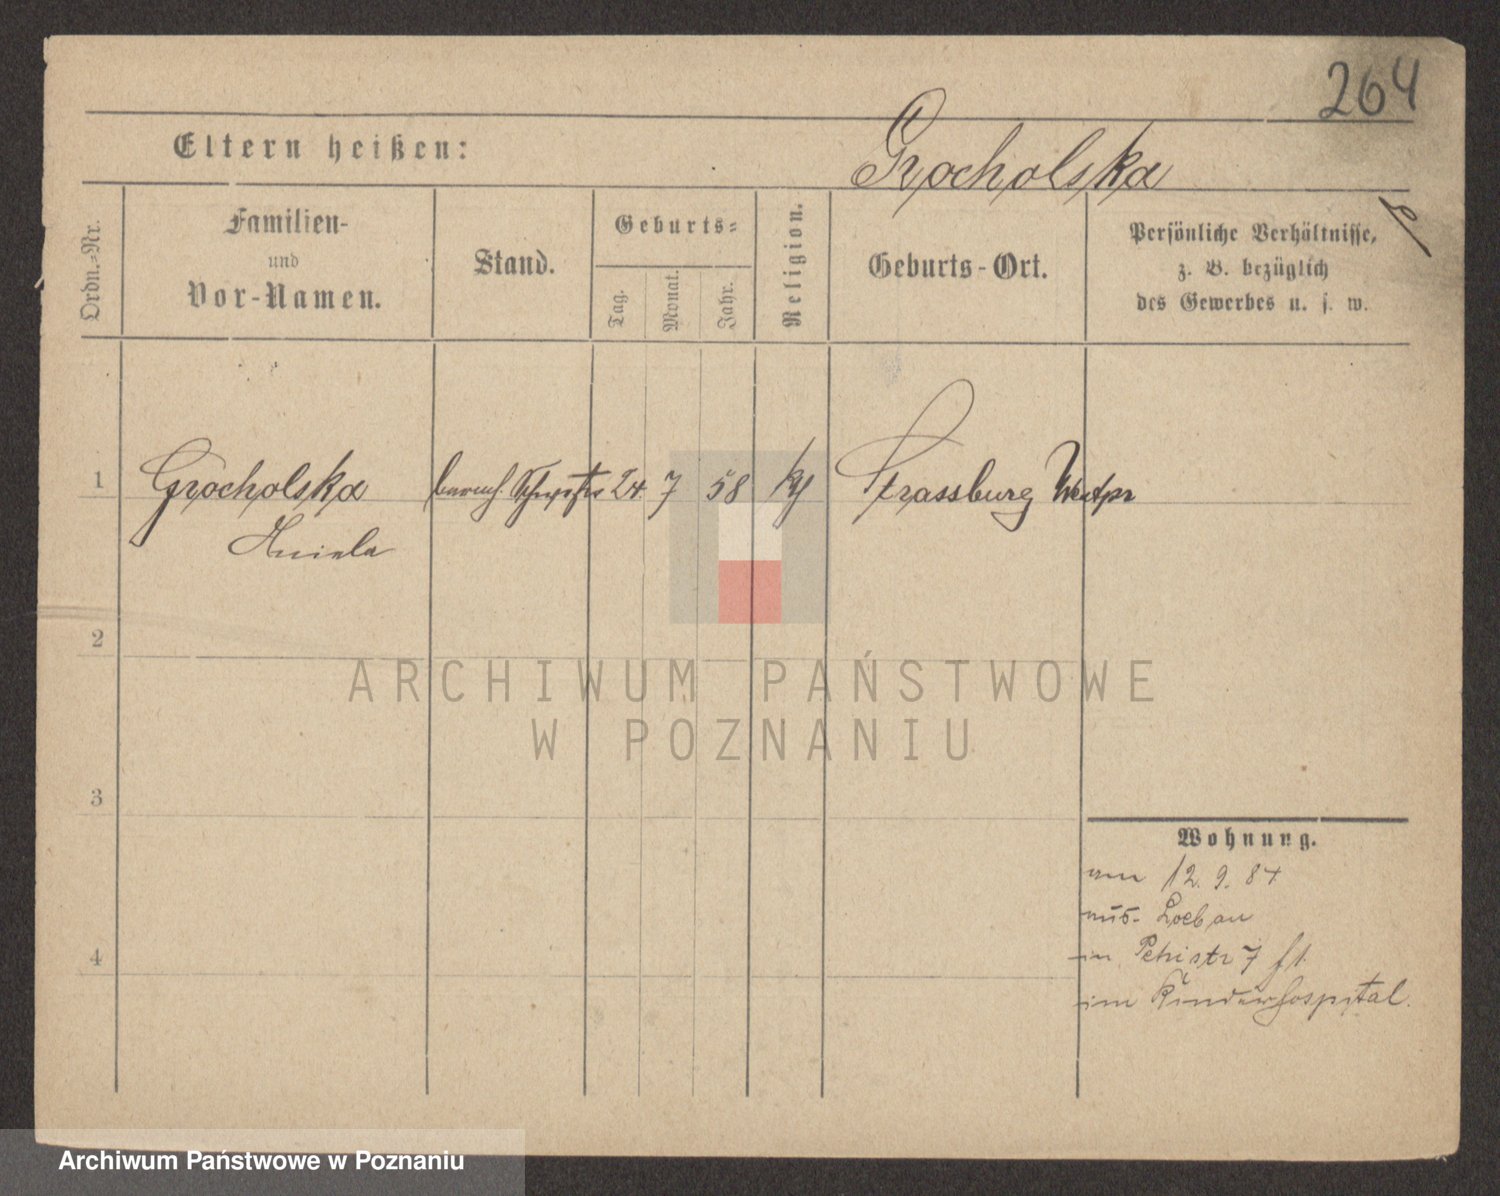 264
Eltern heißen:
Grocholska
Ordn.-Nr.
Familien-
und
Vor-Namen.
Stand.
Geburts-
Tag.
Monat.
Jahr.
Religion.
Geburts-Ort.
Persönliche Verhältnisse,
z. B. bezüglich
des Gewerbes u. s. w.
1 Grocholska barmh. Schwester 24 7 58 kth Strassburg Westpr
Aniela
2
3
4
Wohnung.
am 12. 9. 84
aus. Loebau
in Petristr 7
im Kinderhospital.
ARCHIWUM PAŃSTWOWE
W POZNANIU
Archiwum Państwowe w Poznaniu